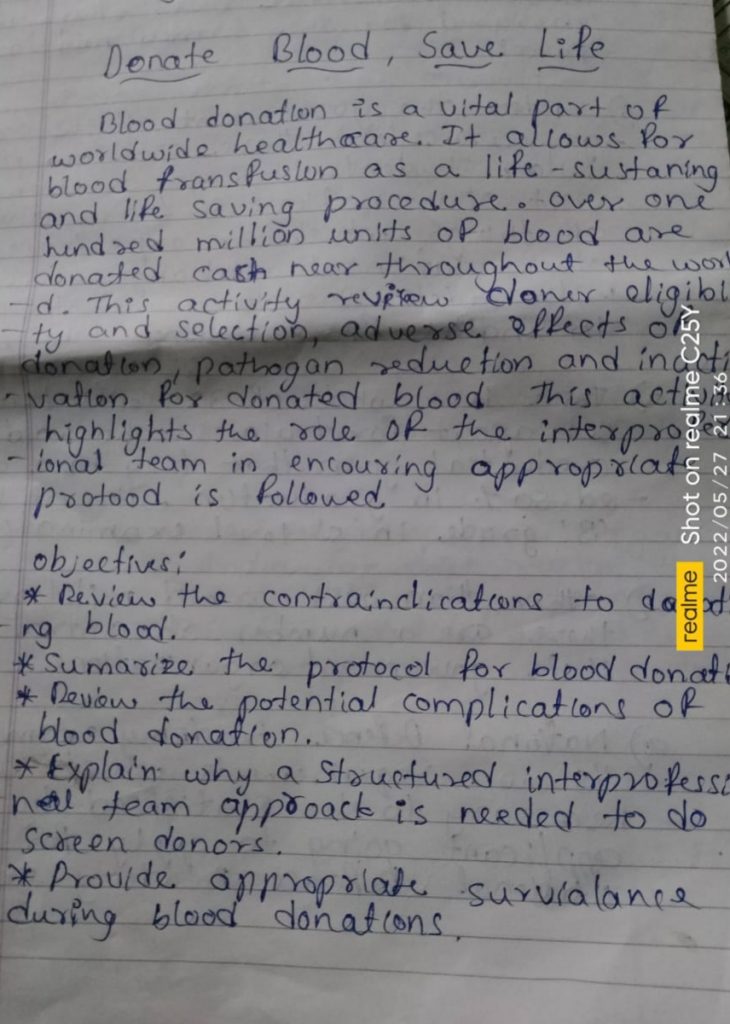 Donate Blood, Save Life
Blood donation is a vital part of
worldwide healthcare. It allows for
blood transfusion as a life-sustaning
and life saving procedure. over one
hundred million units of blood are
donated each near throughout the worl
-d. This activity review doner eligibl
-ty and selection, adverse effects of
donation, pathogan reduction and inacti
-vation for donated blood This action
highlights the role of the interprofess
-ional team in encouring appropriate
protood is followed.
objectives:
* Review the contraindications to donati
-ng blood.
* Sumarize the protocol for blood donati
* Review the potential complications of
blood donation.
* Explain why a structured interprofessi
nal team approack is needed to do
screen donors.
* Provide appropriate survialance
during blood donations.
realme Shot on realme C25Y
2022/05/27 21:36